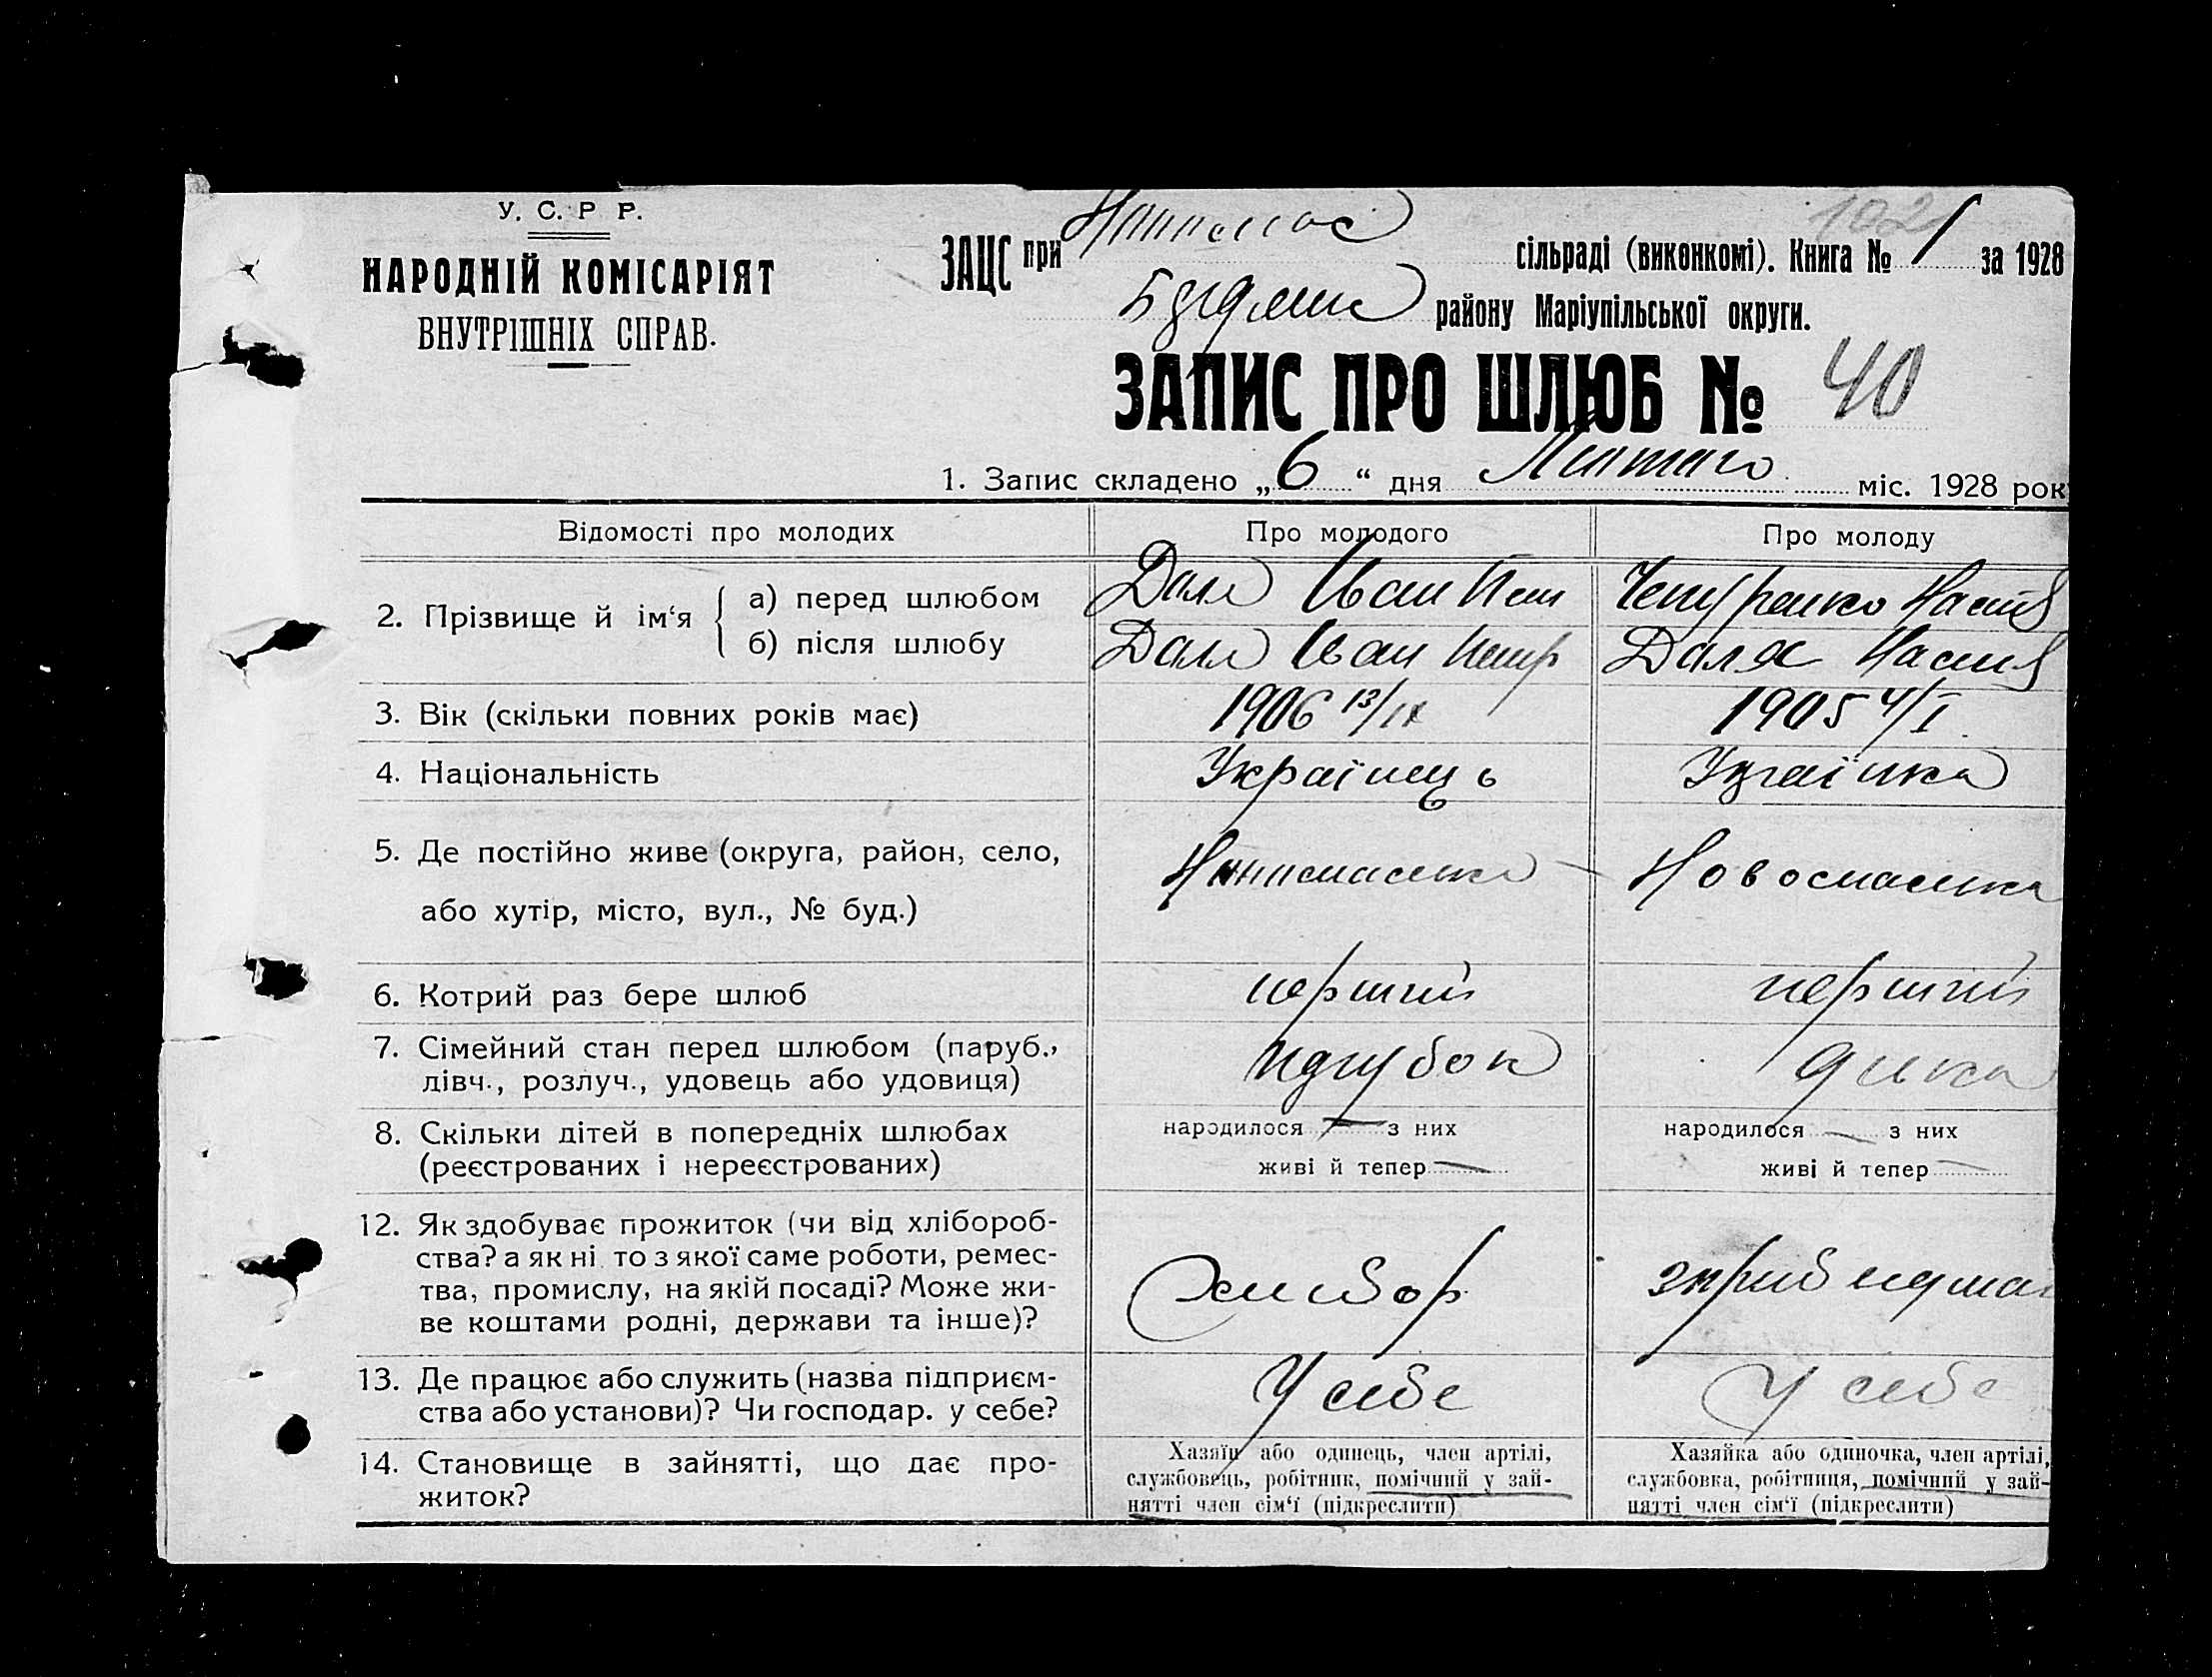 У. С. Р Р.
НАРОДНІЙ КОМІСАРІЯТ
ВНУТРІШНІХ СПРАВ.
ЗАЦС при сільраді (виконкомі). Книга № 1 за 1928
району Маріупільської округи.
ЗАПИС ПРО ШЛЮБ № 40
1. Запис складено „6“ дня Лютого міс. 1928 рок
Відомості про молодих Про молодого Про молоду
2. Прізвище й ім‘я а) перед шлюбом Даля Іван Чепуренко Настя
б) після шлюбу Даля Іван Петр Даля Настя
3. Вік (скільки повних років має) 1906 13/IX 1905 4/I
4. Національність Українець Українка
5. Де постійно живе (округа, район, село, Новоспаська
або хутір, місто, вул., № буд.)
6. Котрий раз бере шлюб перший перший
7. Сімейний стан перед шлюбом (паруб.,
лівч., розлуч., удовець або удовиця)
8. Скільки дітей в попередніх шлюбах народилося — з них народилося — з них
(реєстрованих і нереєстрованих) живі й тепер — живі й тепер —
12. Як здобуває прожиток (чи від хлібороб-
ства? а як ні то з якої саме роботи, ремес-
тва, промислу, на якій посаді? Може жи-
ве коштами родні, держави та інше)?
13. Де працює або служить (назва підприєм- У себе У себе
ства або установи)? Чи господар. у себе?
14. Становище в зайнятті, що дає про-
житок?
Хазяїн або одинець, член артілі,
службовець, робітник, помічний у зай-
нятті член сім‘ї (підкреслити)
Хазяйка або одиночка, член артілі,
службовка, робітниця, помічний у зай-
нятті член сім‘ї (підкреслити)